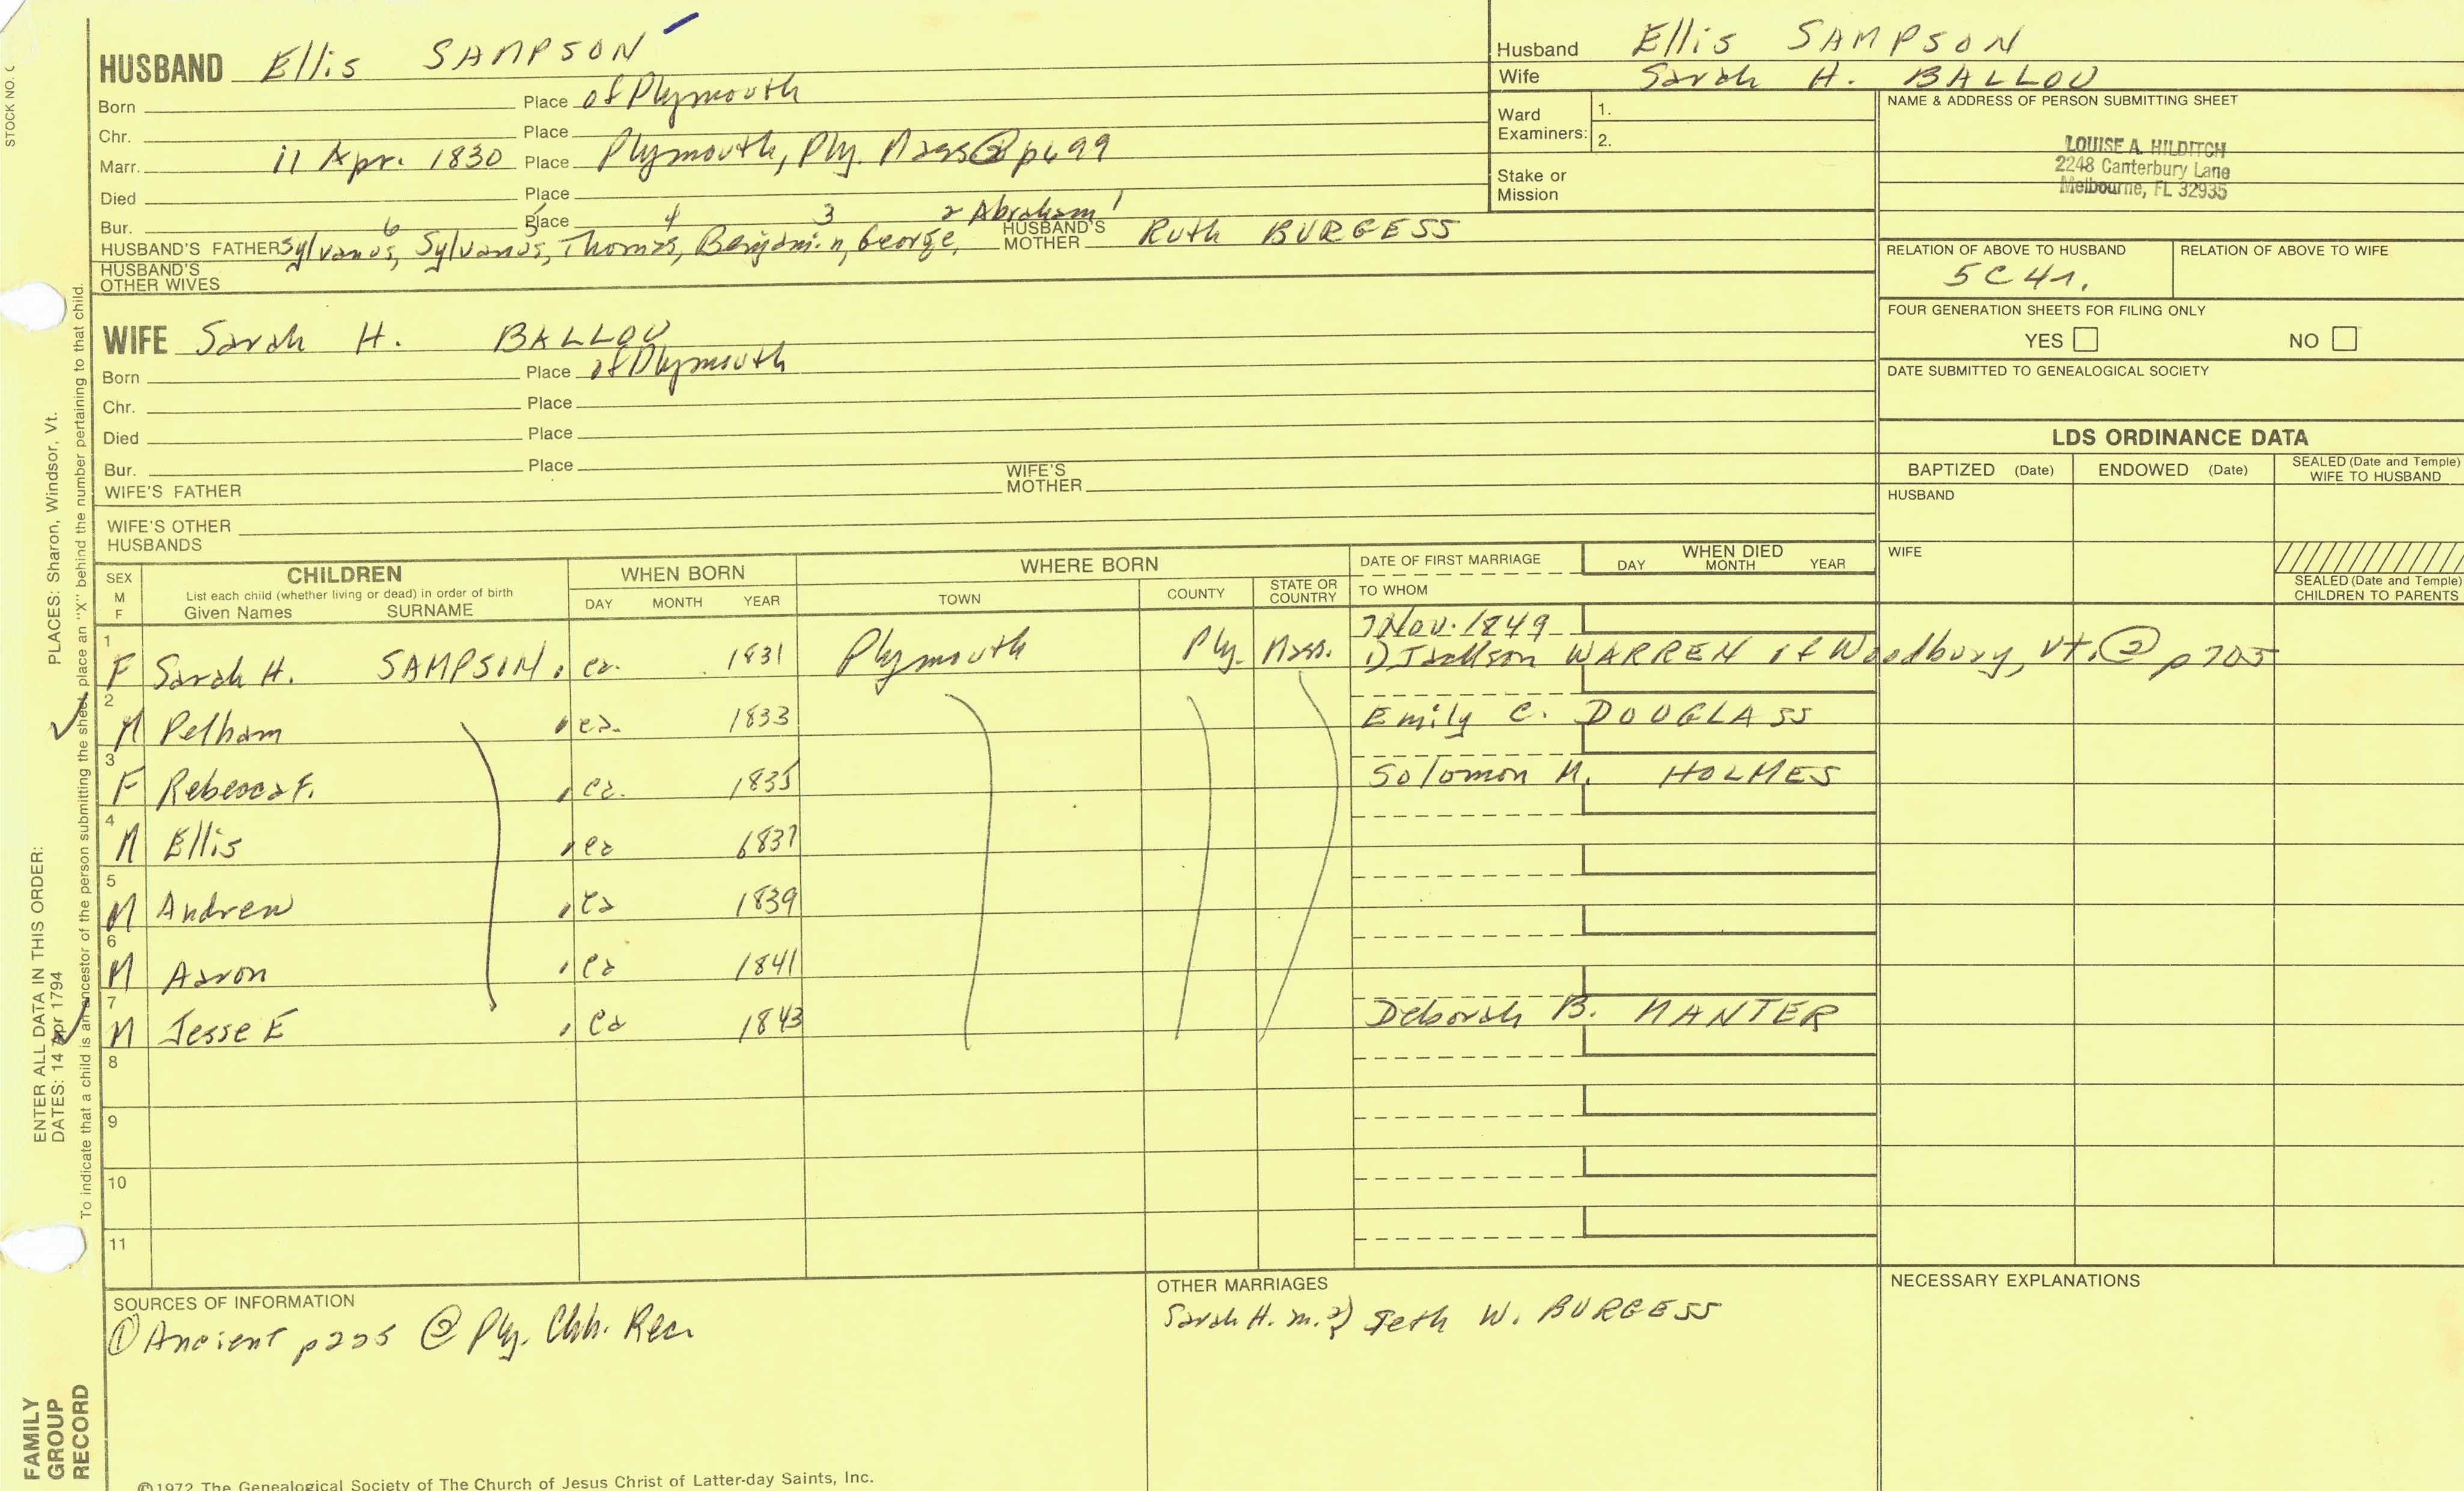 STOCK NO.
HUSBAND Ellis SAMPSON
Born Place of Plymouth
Chr. Place
Marr. 11 Apr. 1830 Place Plymouth, Ply. Mass ② p699
Died Place
Bur. Place
6 5 4 3 2 Abraham 1
HUSBAND'S FATHER Sylvanus, Sylvanus, Thomas, Benjamin, George, HUSBAND'S MOTHER Ruth BURGESS
HUSBAND'S OTHER WIVES
WIFE Sarah H. BALLOU
Born Place of Plymouth
Chr. Place
Died Place
Bur. Place
WIFE'S FATHER WIFE'S MOTHER
WIFE'S OTHER HUSBANDS
Husband Ellis SAMPSON
Wife Sarah H. BALLOU
Ward Examiners: 1. 2.
Stake or Mission
NAME & ADDRESS OF PERSON SUBMITTING SHEET
LOUISE A. HILDITCH
2248 Canterbury Lane
Melbourne, FL 32935
RELATION OF ABOVE TO HUSBAND RELATION OF ABOVE TO WIFE
5C4r.
FOUR GENERATION SHEETS FOR FILING ONLY
YES NO
DATE SUBMITTED TO GENEALOGICAL SOCIETY
LDS ORDINANCE DATA
BAPTIZED (Date) ENDOWED (Date) SEALED (Date and Temple) WIFE TO HUSBAND
HUSBAND
WIFE
SEALED (Date and Temple) CHILDREN TO PARENTS
SEX M F CHILDREN WHEN BORN WHERE BORN DATE OF FIRST MARRIAGE WHEN DIED
List each child (whether living or dead) in order of birth
Given Names SURNAME DAY MONTH YEAR TOWN COUNTY STATE OR COUNTRY TO WHOM DAY MONTH YEAR
7 Nov. 1849
1 F Sarah H. SAMPSON ca. 1831 Plymouth Ply. Mass. 1) Jackson WARREN of Woodbury, Vt. ② p705
2 M Pelham ca. 1833 Emily C. DOUGLASS
3 F Rebecca F. ca. 1835 Solomon M. HOLMES
4 M Ellis ca 1837
5 M Andrew ca 1839
6 M Aaron ca 1841
7 M Jesse E ca 1843 Deborah B. MANTER
8
9
10
11
SOURCES OF INFORMATION
① Ancient p225 ② Ply. Chh. Rec.
OTHER MARRIAGES
Sarah H. m. 2) Seth W. BURGESS
NECESSARY EXPLANATIONS
©1972 The Genealogical Society of The Church of Jesus Christ of Latter-day Saints, Inc.
FAMILY GROUP RECORD
ENTER ALL DATA IN THIS ORDER: PLACES: Sharon, Windsor, Vt.
DATES: 14 Apr 1794
To indicate that a child is an ancestor of the person submitting the sheet, place an "X" behind the number pertaining to that child.